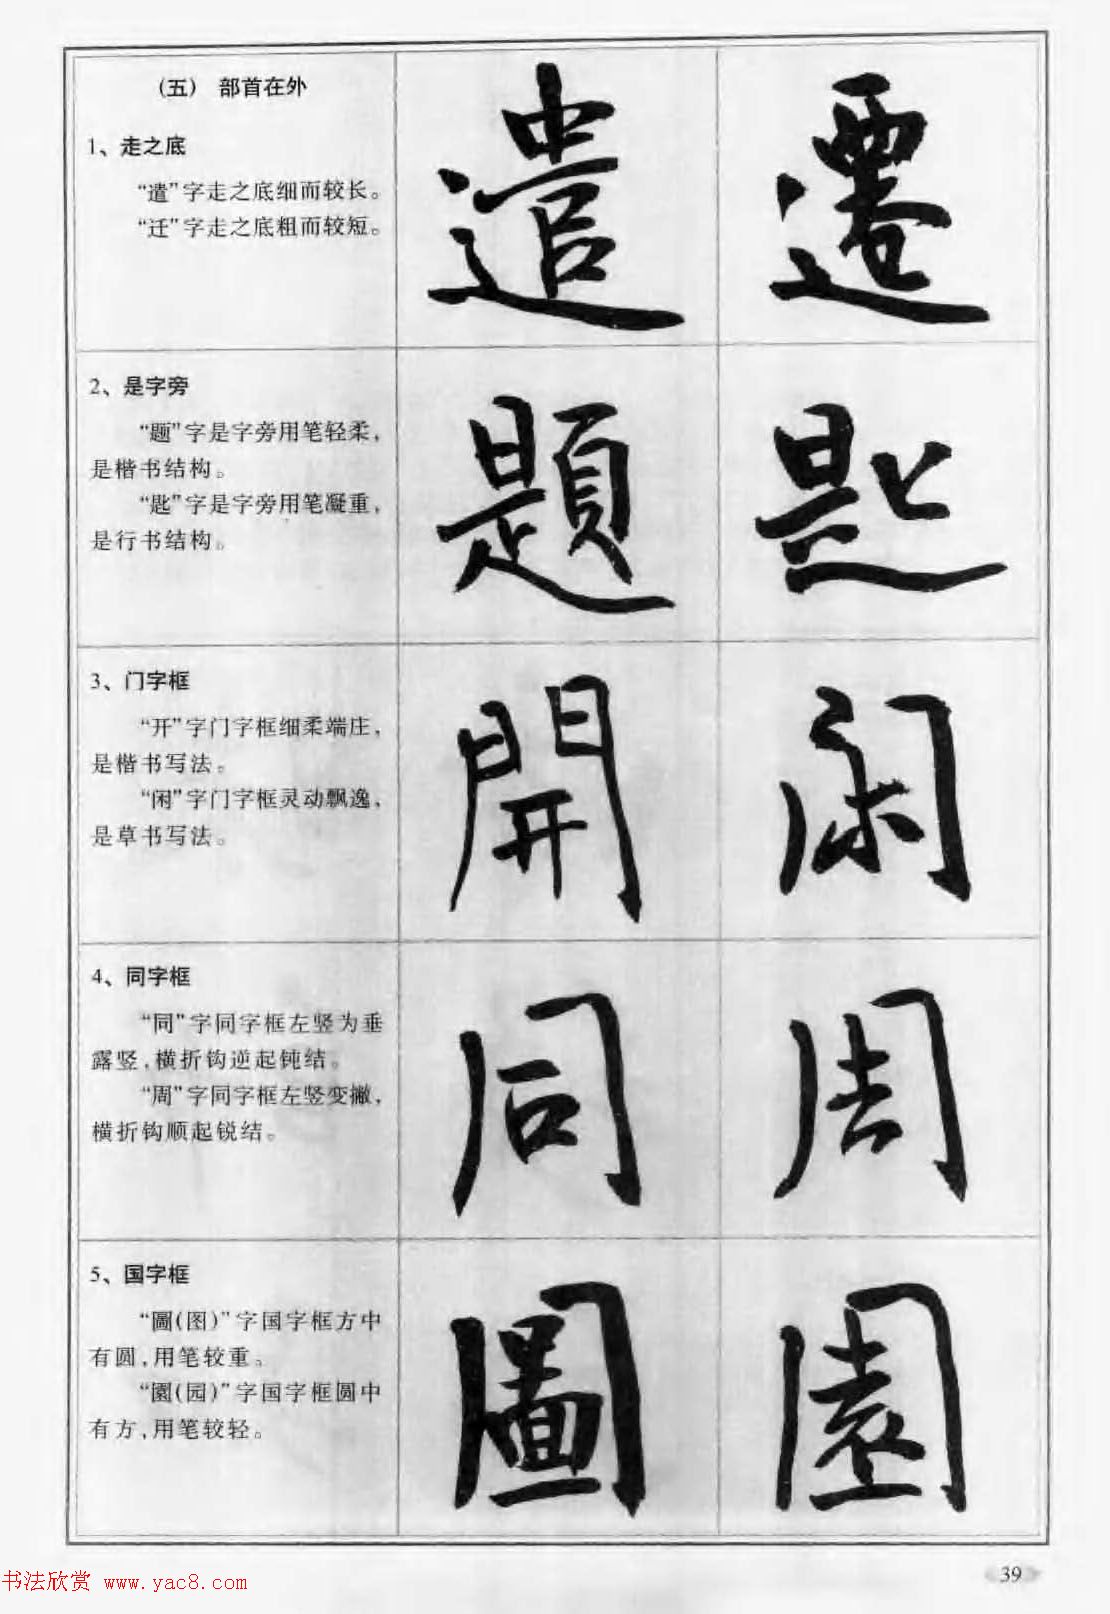 (五) 部首在外
1、走之底
“遣”字走之底细而较长。
“迁”字走之底粗而较短。
遣 遷
2、是字旁
“题”字是字旁用笔轻柔，
是楷书结构。
“匙”字是字旁用笔凝重，
是行书结构。
題 匙
3、门字框
“开”字门字框细柔端庄，
是楷书写法。
“闲”字门字框灵动飘逸，
是草书写法。
開 闲
4、同字框
“同”字同字框左竖为垂
露竖，横折钩逆起钝结。
“周”字同字框左竖变撇，
横折钩顺起锐结。
同 周
5、国字框
“圖(图)”字国字框方中
有圆，用笔较重。
“園(园)”字国字框圆中
有方，用笔较轻。
圖 園
39
书法欣赏 www.yac8.com